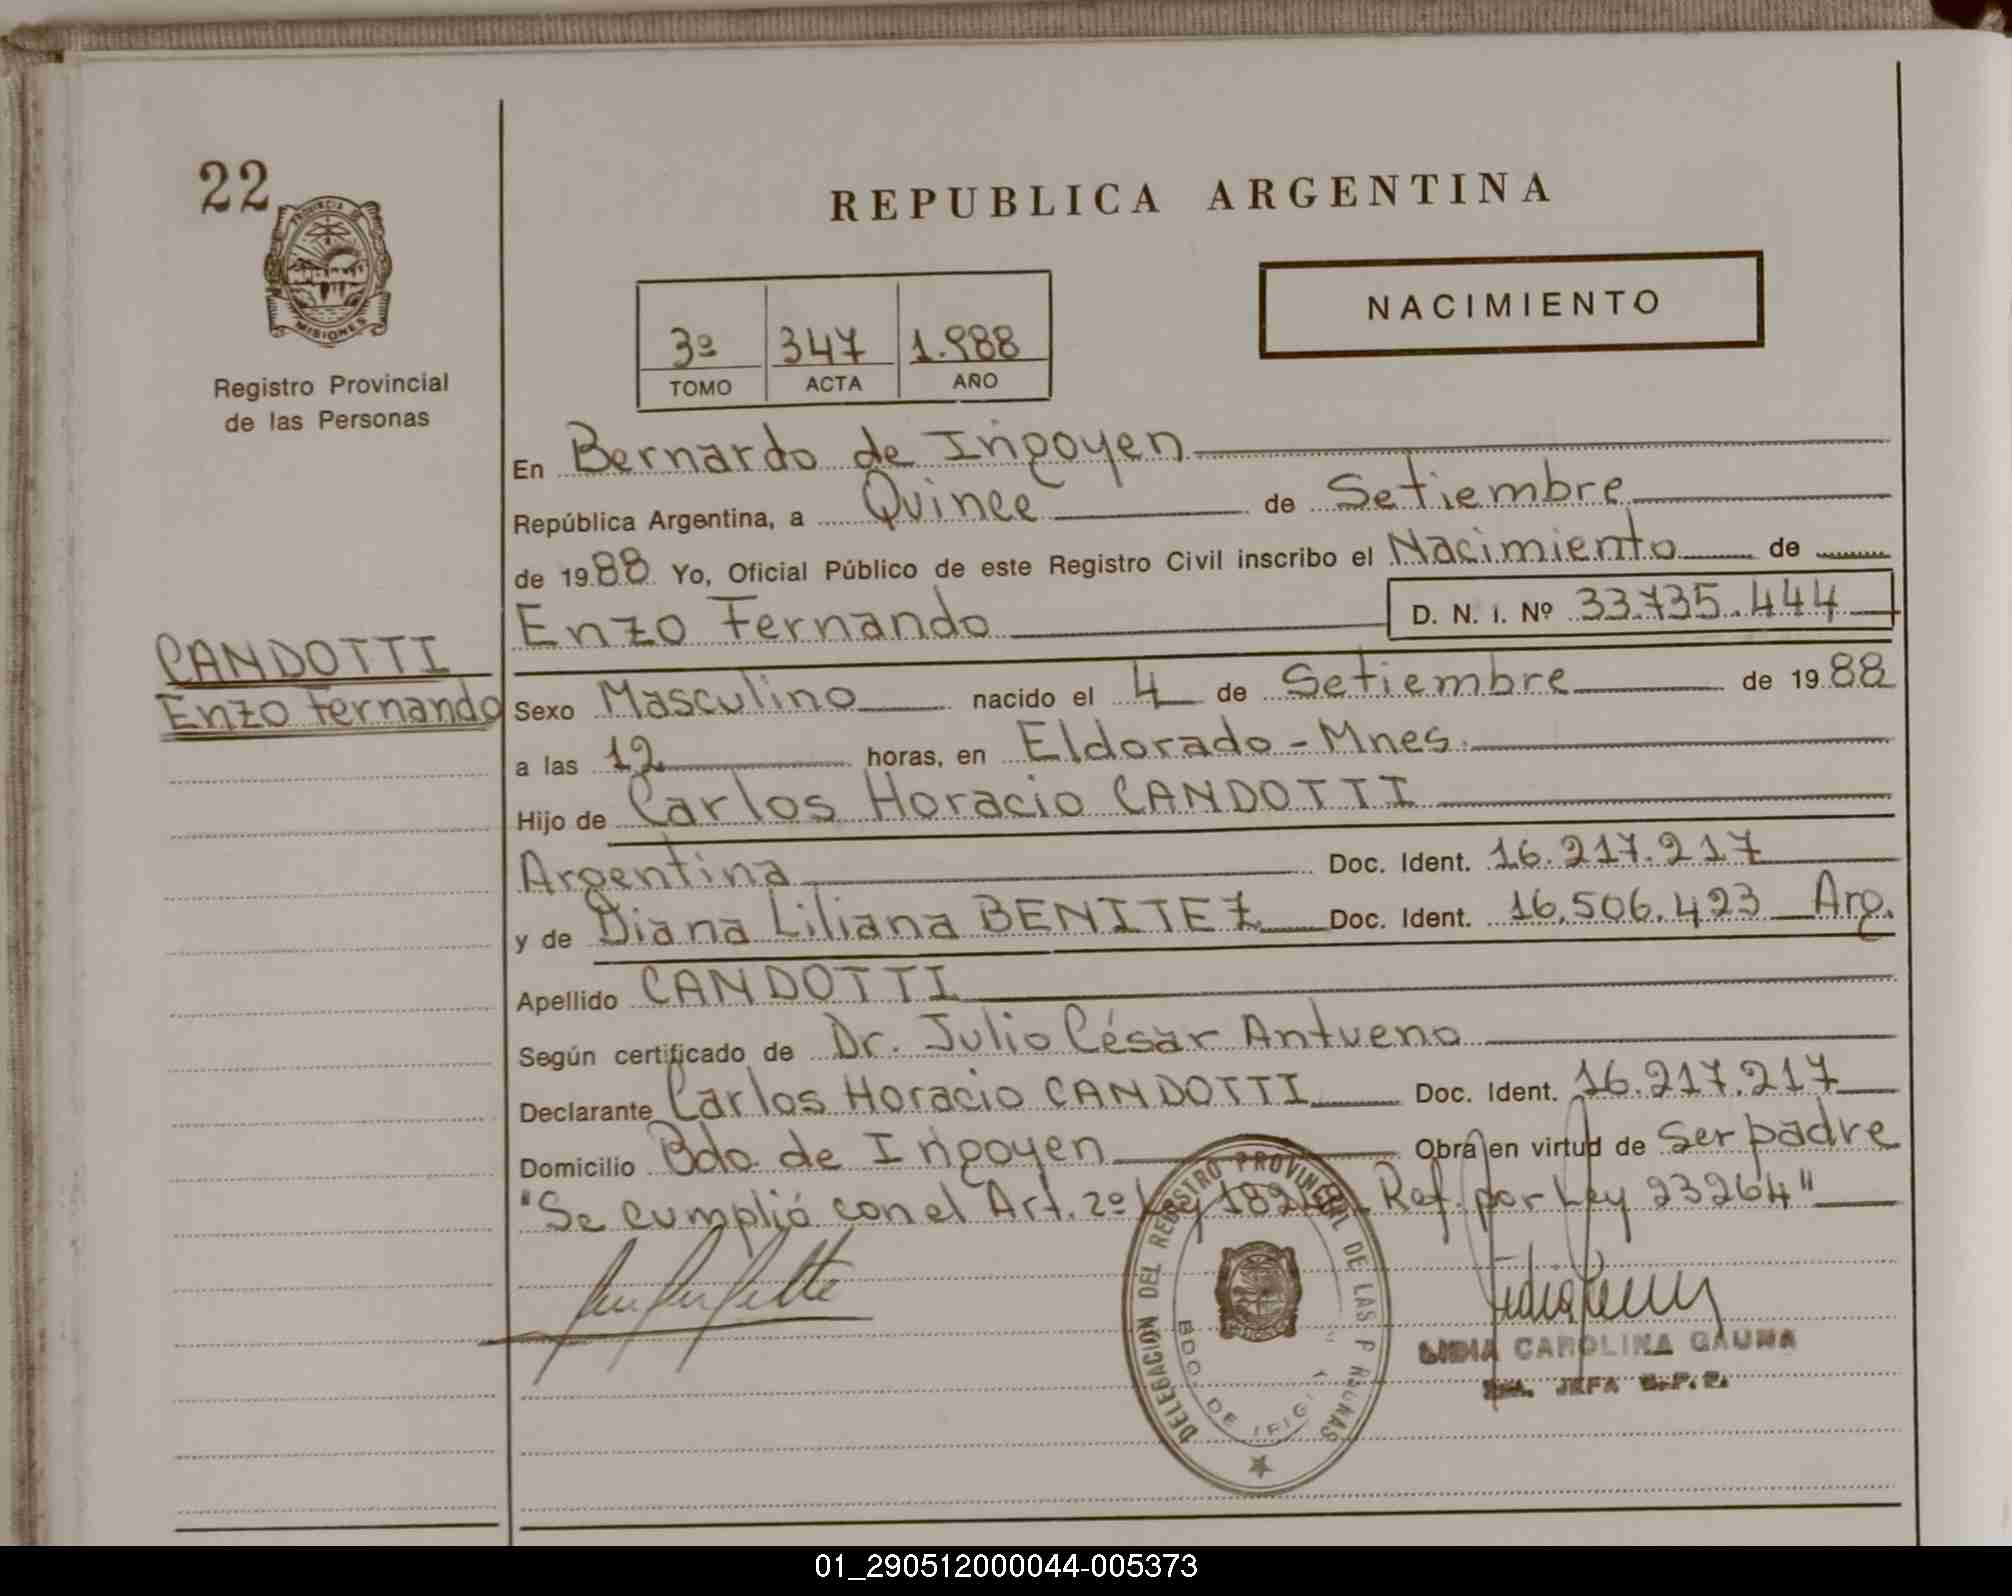 22
PROVINCIA DE
MISIONES
Registro Provincial
de las Personas
REPUBLICA ARGENTINA
NACIMIENTO
3º 347 1.988
TOMO ACTA AÑO
En Bernardo de Irigoyen
República Argentina, a Quince de Setiembre
de 1988 Yo, Oficial Público de este Registro Civil inscribo el Nacimiento de
Enzo Fernando D. N. I. Nº 33.735.444
CANDOTTI
Enzo Fernando
Sexo Masculino nacido el 4 de Setiembre de 1988
a las 12 horas, en Eldorado - Mnes.
Hijo de Carlos Horacio CANDOTTI
Argentina Doc. Ident. 16.217.217
y de Diana Liliana BENITEZ Doc. Ident. 16.506.423 Arg.
Apellido CANDOTTI
Según certificado de Dr. Julio César Antueno
Declarante Carlos Horacio CANDOTTI Doc. Ident. 16.217.217
Domicilio Bdo. de Irigoyen Obra en virtud de Ser padre
"Se cumplió con el Art. 2º Ley Ref. por Ley 23264"
DELEGACION DEL REGISTRO PROVINCIAL DE LAS
BDO. DE IRIG
LIDIA CAROLINA GAUNA
JEFA
01_290512000044-005373